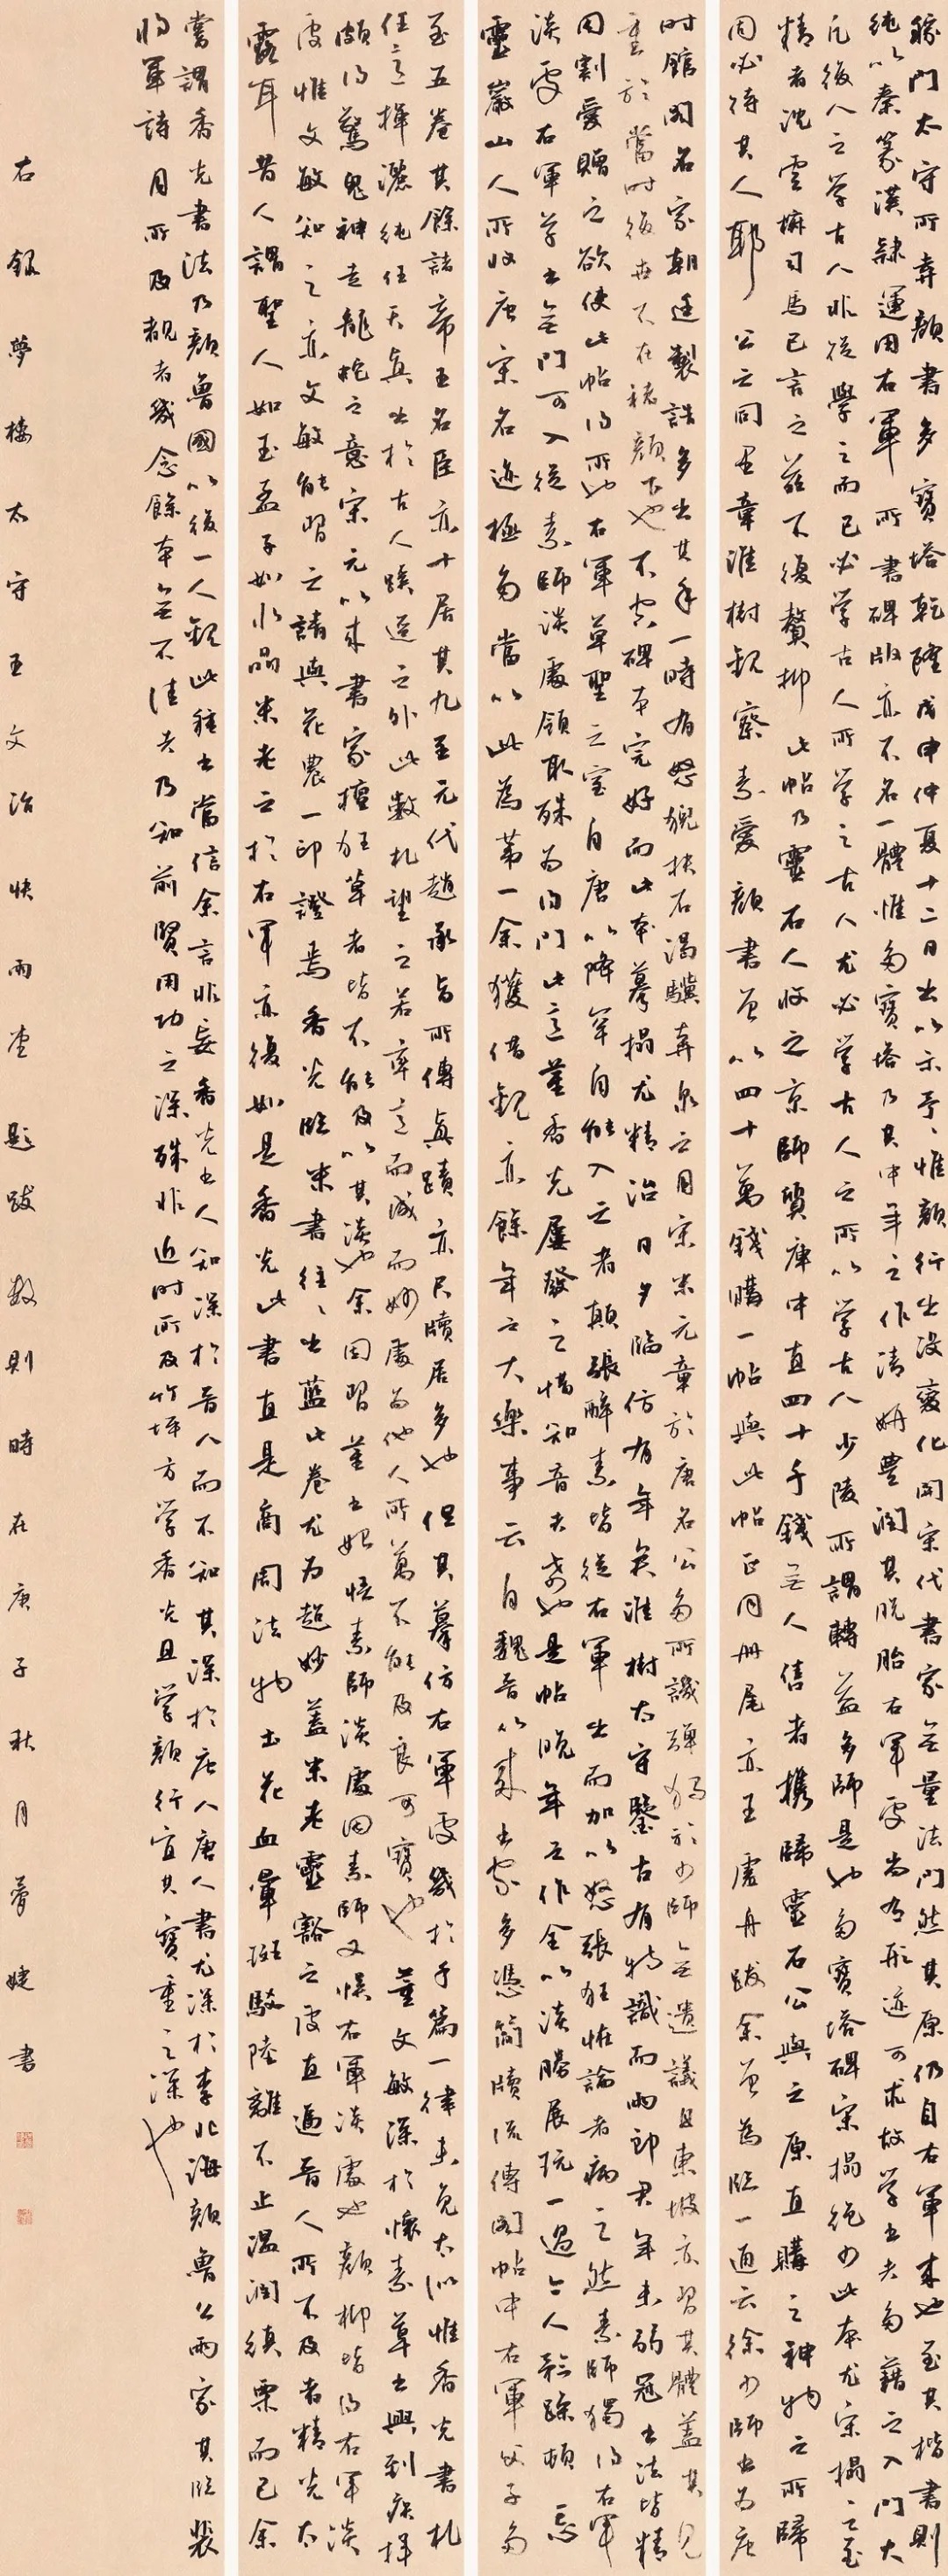 驗門太守所弆顏書多寶塔乾隆戊申仲夏十二日出以示予予惟顏行出沒變化開宋代書家無量法門然其原仍自右軍來也至其楷書則
純以秦篆漢隸運用右軍所書碑版亦不名一體惟多寶塔乃其中年之作清妍豐潤其脫胎右軍處尚有形迹可求故學書者多藉之入門大
凡後人之學古人非從學之而已必學古人所學之古人尤必學古人之所以學古人少陵所謂轉益多師是也多寶塔碑宋搨絕少此本尤宋搨之至
精者沈雲椒司馬已言之茲不復贅抑此帖乃靈石人收之京師質庫中直四十千錢無人售者攜歸靈石公與之原直購之神物之所歸
固必待其人耶公之同里韋淮樹觀察素愛顏書曾以四十萬錢購一帖與此帖正同冊尾亦王虛舟跋余曾為臨一通云徐少師書為唐
時館閣名家朝廷製誥多出其手一時有怒猊抉石渴驥奔泉之目宋米元章於唐名公多所譏彈獨於少師無遺議且東坡亦習其體蓋其見
重於當時後世不在褚顏下也不空碑本完好而此本摹搨尤精治日夕臨仿有年矣淮樹太守鑒古有特識而兩郎君年未弱冠書法皆精
因割愛贈之欲使此帖得所也右軍草聖之室自唐以降罕自能入之者顛張醉素皆從右軍出而加以怒張狂怪論者病之然素師獨得右軍
淡處右軍草書無門可入從素師淡處領取殊為得門此意董香光屢發之惜知音者希也是帖晚年之作全以淡勝展玩一過令人矜躁頓忘
靈巖山人所收唐宋名迹極多當以此為第一余獲借觀亦餘年之大樂事云自魏晉以來書家多憑簡牘流傳閣帖中右軍父子多
至五卷其餘諸帝王名臣亦十居其九至元代趙承旨所傳真蹟亦尺牘居多也但其摹仿右軍處幾於千篇一律未免太似惟香光書札
任意揮灑純任天真出於古人蹊逕之外此數札望之若率意而成而妙處為他人所萬不能及良可寶也董文敏深於懷素草書興到疾揮
頗得驚鬼神走龍蛇之意宋元以來書家擅狂草者皆不能及以其淡也余因習董書始悟素師淡處因素師又悟右軍淡處也顏柳皆得右軍淡
處惟文敏知之亦文敏能習之請與花農一印證焉香光臨米書往往出藍此卷尤為超妙蓋米老靈豁之處直逼晉人所不及者精光太
露耳昔人謂聖人如玉孟子如水晶米老之於右軍亦復如是香光此書直是商周法物土花血暈斑駁陸離不止溫潤縝栗而已余
嘗謂香光書法乃顏魯國以後一人觀此種書當信余言非妄香光書人知深於晉人而不知其深於唐人唐人書尤深於李北海顏魯公兩家其臨裴
將軍詩目所及覩者幾念餘本無不佳者乃知前賢用功之深殊非近時所及竹坪方學香光且學顏行宜其寶重之深也
右錄夢樓太守王文治快雨堂題跋數則時在庚子秋月夢婕書